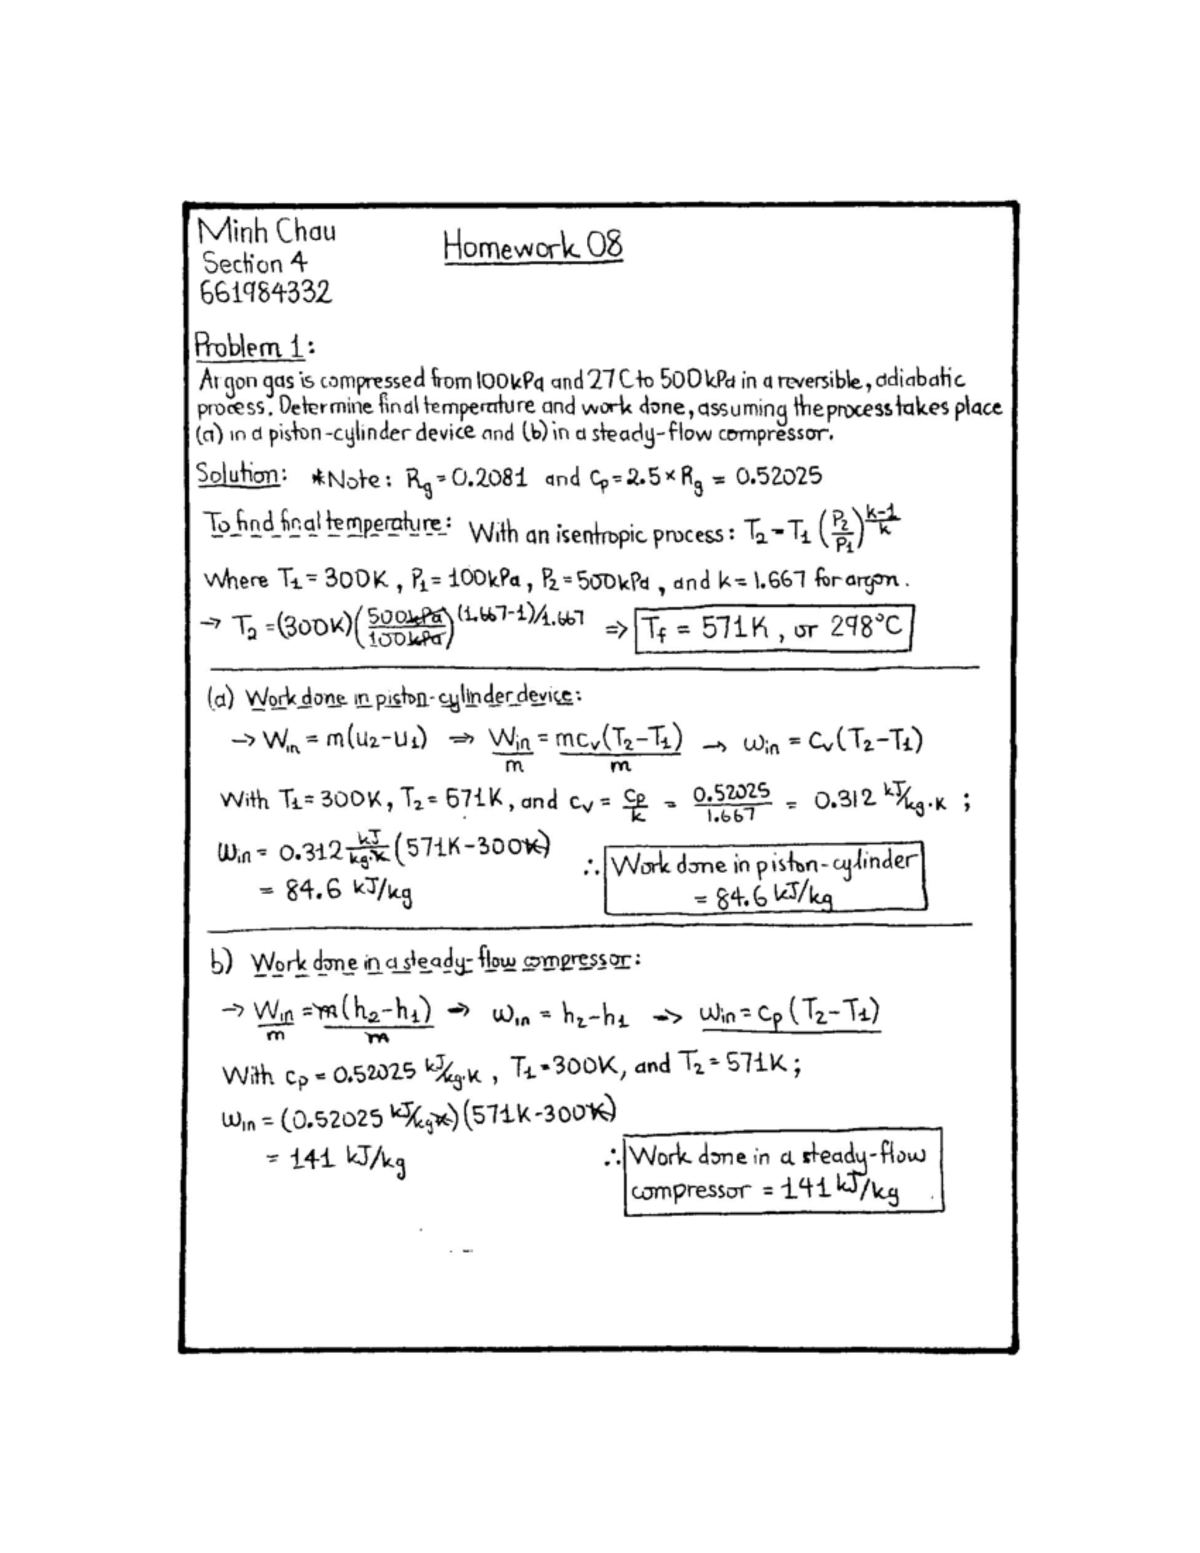 Minh Chau
Homework 08
Section 4
661984332
Problem 1:
Argon gas is compressed from 100kPa and 27C to 500kPa in a reversible, adiabatic
process. Determine final temperature and work done, assuming the process takes place
(a) in a piston-cylinder device and (b) in a steady-flow compressor.
Solution: *Note: Rg = 0.2081 and Cp = 2.5 × Rg = 0.52025
To find final temperature: With an isentropic process: T2 = T1 (P2/P1)^(k-1/k)
Where T1 = 300K, P1 = 100kPa, P2 = 500kPa, and k = 1.667 for argon.
→ T2 = (300K)(500kPa/100kPa)^(1.667-1)/1.667 ⇒ Tf = 571K, or 298°C
(a) Work done in piston-cylinder device:
→ Win = m(u2-u1) ⇒ Win/m = mcv(T2-T1)/m → win = Cv(T2-T1)
With T1 = 300K, T2 = 571K, and cv = Cp/k = 0.52025/1.667 = 0.312 kJ/kg·K ;
Win = 0.312 kJ/kg·K (571K-300K)
= 84.6 kJ/kg
∴ Work done in piston-cylinder
= 84.6 kJ/kg
b) Work done in a steady-flow compressor:
→ Win/m = m(h2-h1)/m → win = h2-h1 → win = cp(T2-T1)
With cp = 0.52025 kJ/kg·K, T1 = 300K, and T2 = 571K;
Win = (0.52025 kJ/kg·K)(571K-300K)
= 141 kJ/kg
∴ Work done in a steady-flow
compressor = 141 kJ/kg